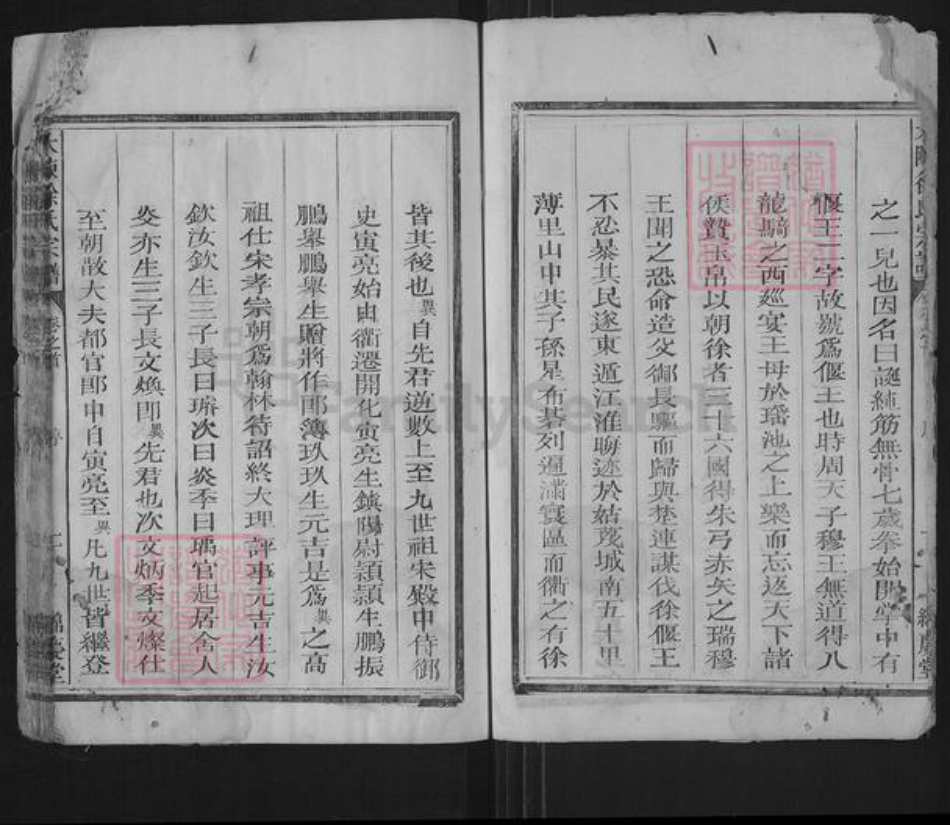 之一兒也因名曰誕純筋無骨七歲拳始開掌中有
偃王二字故號爲偃王也時周天子穆王無道得八
龍騎之西廵宴王母於瑤池之上樂而忘返天下諸
侯贄玉帛以朝徐者三十六國得朱弓赤矢之瑞穆
王聞之恐命造父御長驅而歸與楚連謀伐徐偃王
不忍暴其民遂東遁江淮晦迹於姑蔑城南五十里
薄里山中其子孫星布碁列遍滿寰區而衢之有徐
皆其後也異自先君逆數上至九世祖宋殿中侍御
史寅亮始由衢遷開化寅亮生鎮陽尉頴頴生鵬振
鵬舉鵬舉生贈將作郎簿玖玖生元吉是爲異之高
祖仕宋孝宗朝爲翰林待詔終大理評事元吉生汝
欽汝欽生三子長曰璿次曰炎季曰瑀官起居舍人
炎亦生三子長文煥即異先君也次文炳季文燦仕
至朝散大夫都官郎中自寅亮至異凡九世皆繼登
徐氏宗譜
卷之首